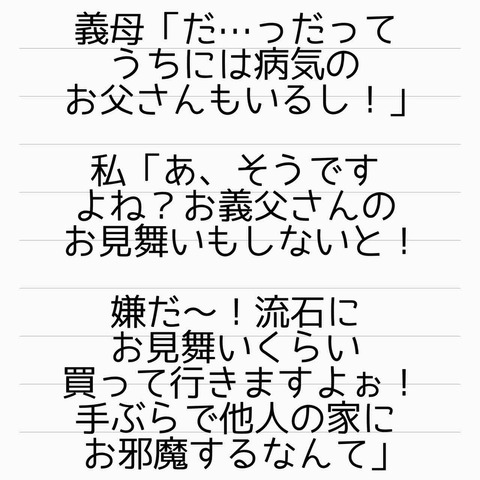 義母「だ…っだって
うちには病気の
お父さんもいるし！」
私「あ、そうです
よね？お義父さんの
お見舞いもしないと！
嫌だ〜！流石に
お見舞いくらい
買って行きますよぉ！
手ぶらで他人の家に
お邪魔するなんて」